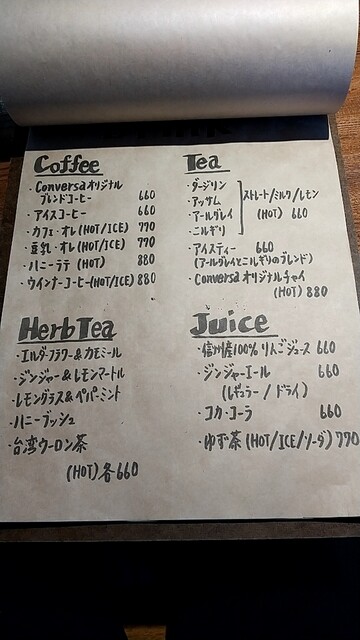 Coffee
・Conversaオリジナル
ブレンドコーヒー 660
・アイスコーヒー 660
・カフェ・オレ(HOT/ICE) 770
・豆乳・オレ(HOT/ICE) 770
・ハニーラテ (HOT) 880
・ウインナーコーヒー(HOT/ICE) 880
Tea
・ダージリン
・アッサム
・アールグレイ
・ニルギリ
ストレート/ミルク/レモン
(HOT) 660
・アイスティー 660
(アールグレイとニルギリのブレンド)
・Conversaオリジナルチャイ
(HOT) 880
Herb Tea
・エルダーフラワー&カモミール
・ジンジャー&レモンマートル
・レモングラス&ペパーミント
・ハニーブッシュ
・台湾ウーロン茶
(HOT) 各660
Juice
・信州産100%りんごジュース 660
・ジンジャーエール 660
(レギュラー/ドライ)
・コカ・コーラ 660
・ゆず茶 (HOT/ICE/ソーダ) 770